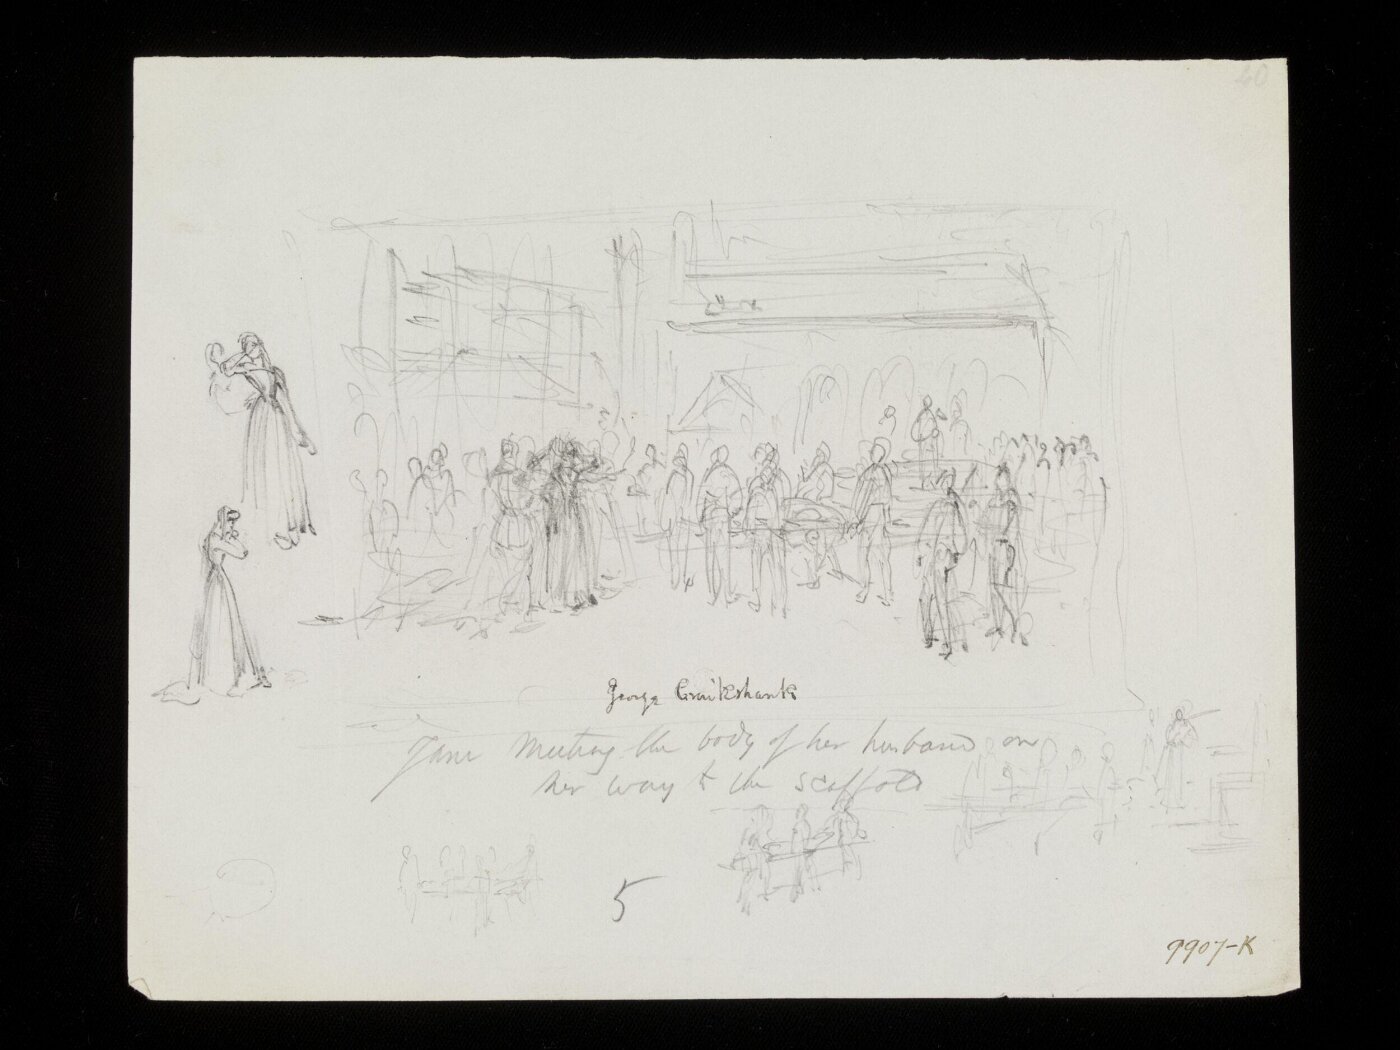 40
George Cruikshank
Jane Meeting the body of her husband on
her way to the scaffold
5
9907-K